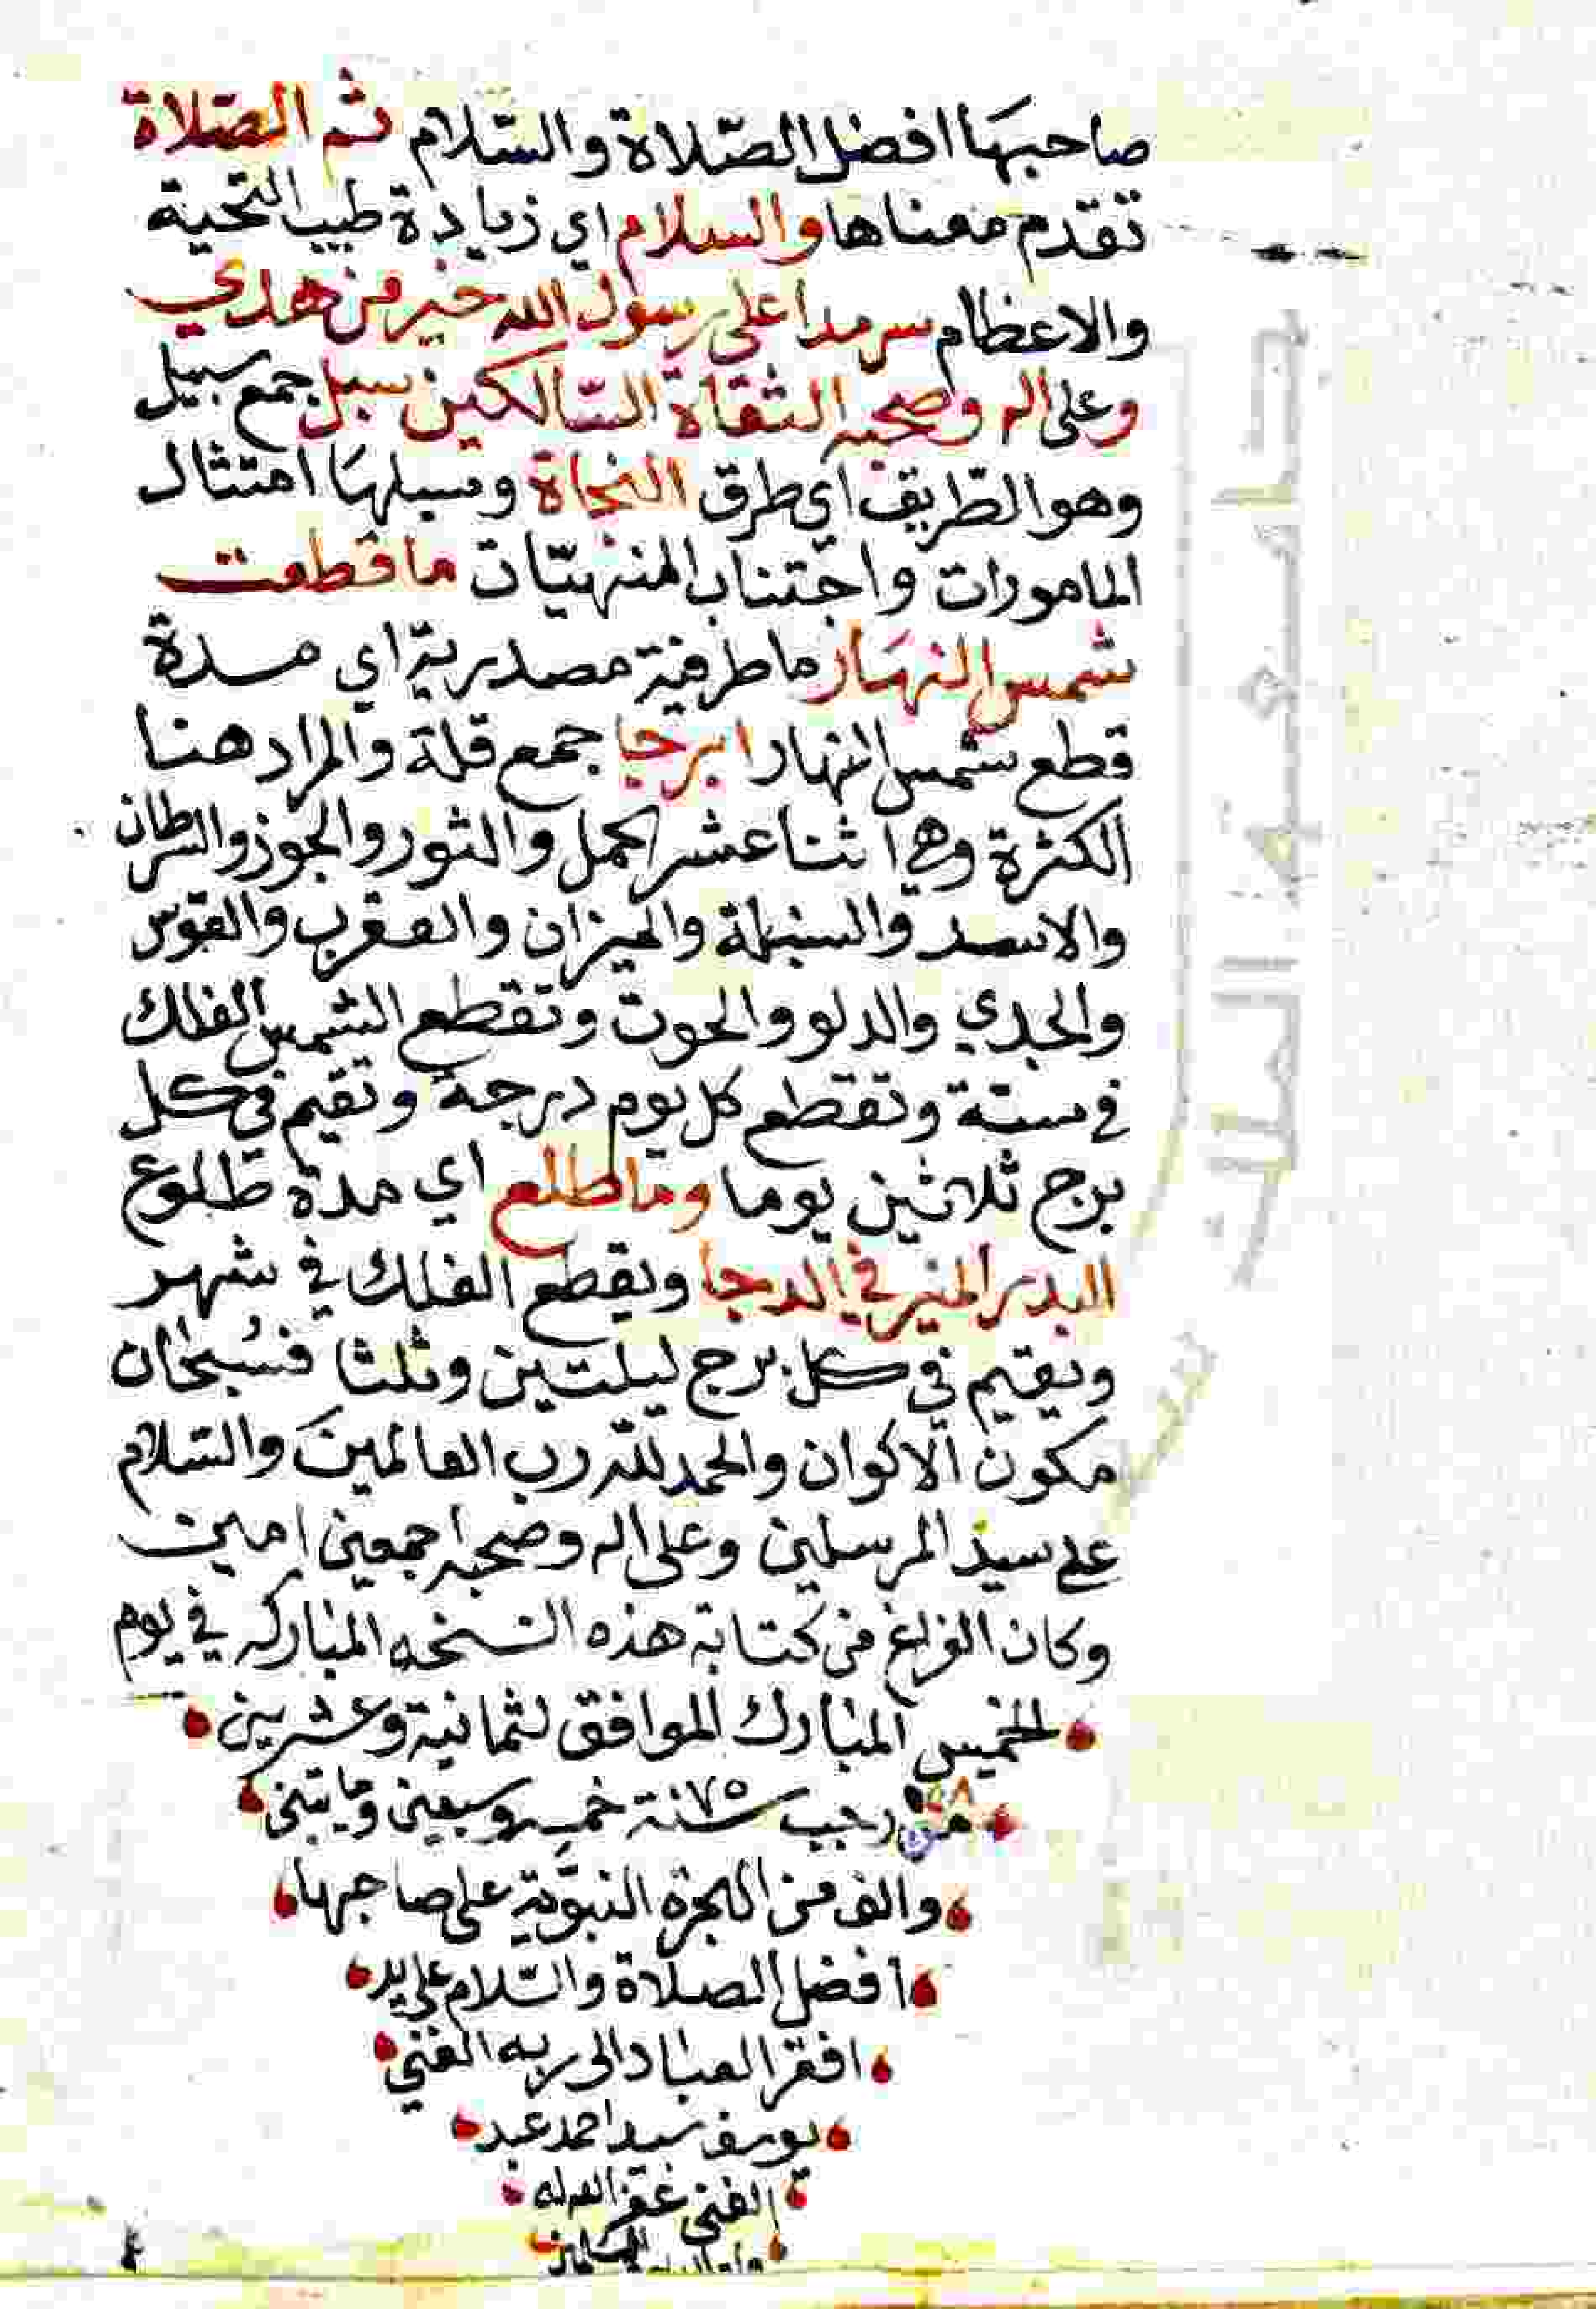 صاحبها افضل الصّلاة والسّلام ثم الصّلاة
تقدم معناها والسلام اي زيادة طيب التحية
والاعظام سرمدا على رسول الله خير من هدي
وعلى اله وصحبه الثقاة السّالكين سبل جمع سبيل
وهو الطّريق اي طرق النجاة وسبلها امتثال
المامورات واجتناب المنهيّات ما قطعت
شمس النهار ما ظرفية مصدرية اي مدة
قطع شمس النهار ابرجا جمع قلة والمراد هنا
الكثرة وهي اثنا عشر الحمل والثور والجوز والسرطان
والاسد والسنبلة والميزان والعقرب والقوس
والجدي والدلو والحوت وتقطع الشمس الفلك
في سنة وتقطع كل يوم درجة وتقيم في كل
برج ثلاثين يوما وما طلع اي مدة طلوع
البدر المنير في الدجا ويقطع الفلك في شهر
ويقيم في كل برج ليلتين وثلثا فسُبحان
مكون الاكوان والحمد لله رب العالمين والسّلام
على سيد المرسلين وعلى اله وصحبه اجمعين امين
وكان الفراغ من كتابة هذه النسخه المباركه في يوم
الخميس المبارك الموافق لثمانية وعشرين
من رجب سنة ٧٥ خمسه وسبعين ومايتين
والف من الهجرة النبوّية على صاحبها
افضل الصلاة والسّلام على يد
افقر العباد الى ربه الغني
يوسف سيد احمد عبد
الغني غفر الله له